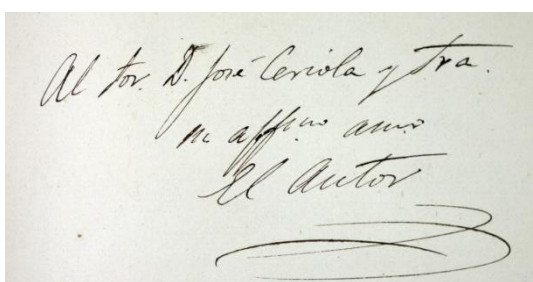 Al Sor. D. José Ceriola y Sra.
su affmo amo
El Autor